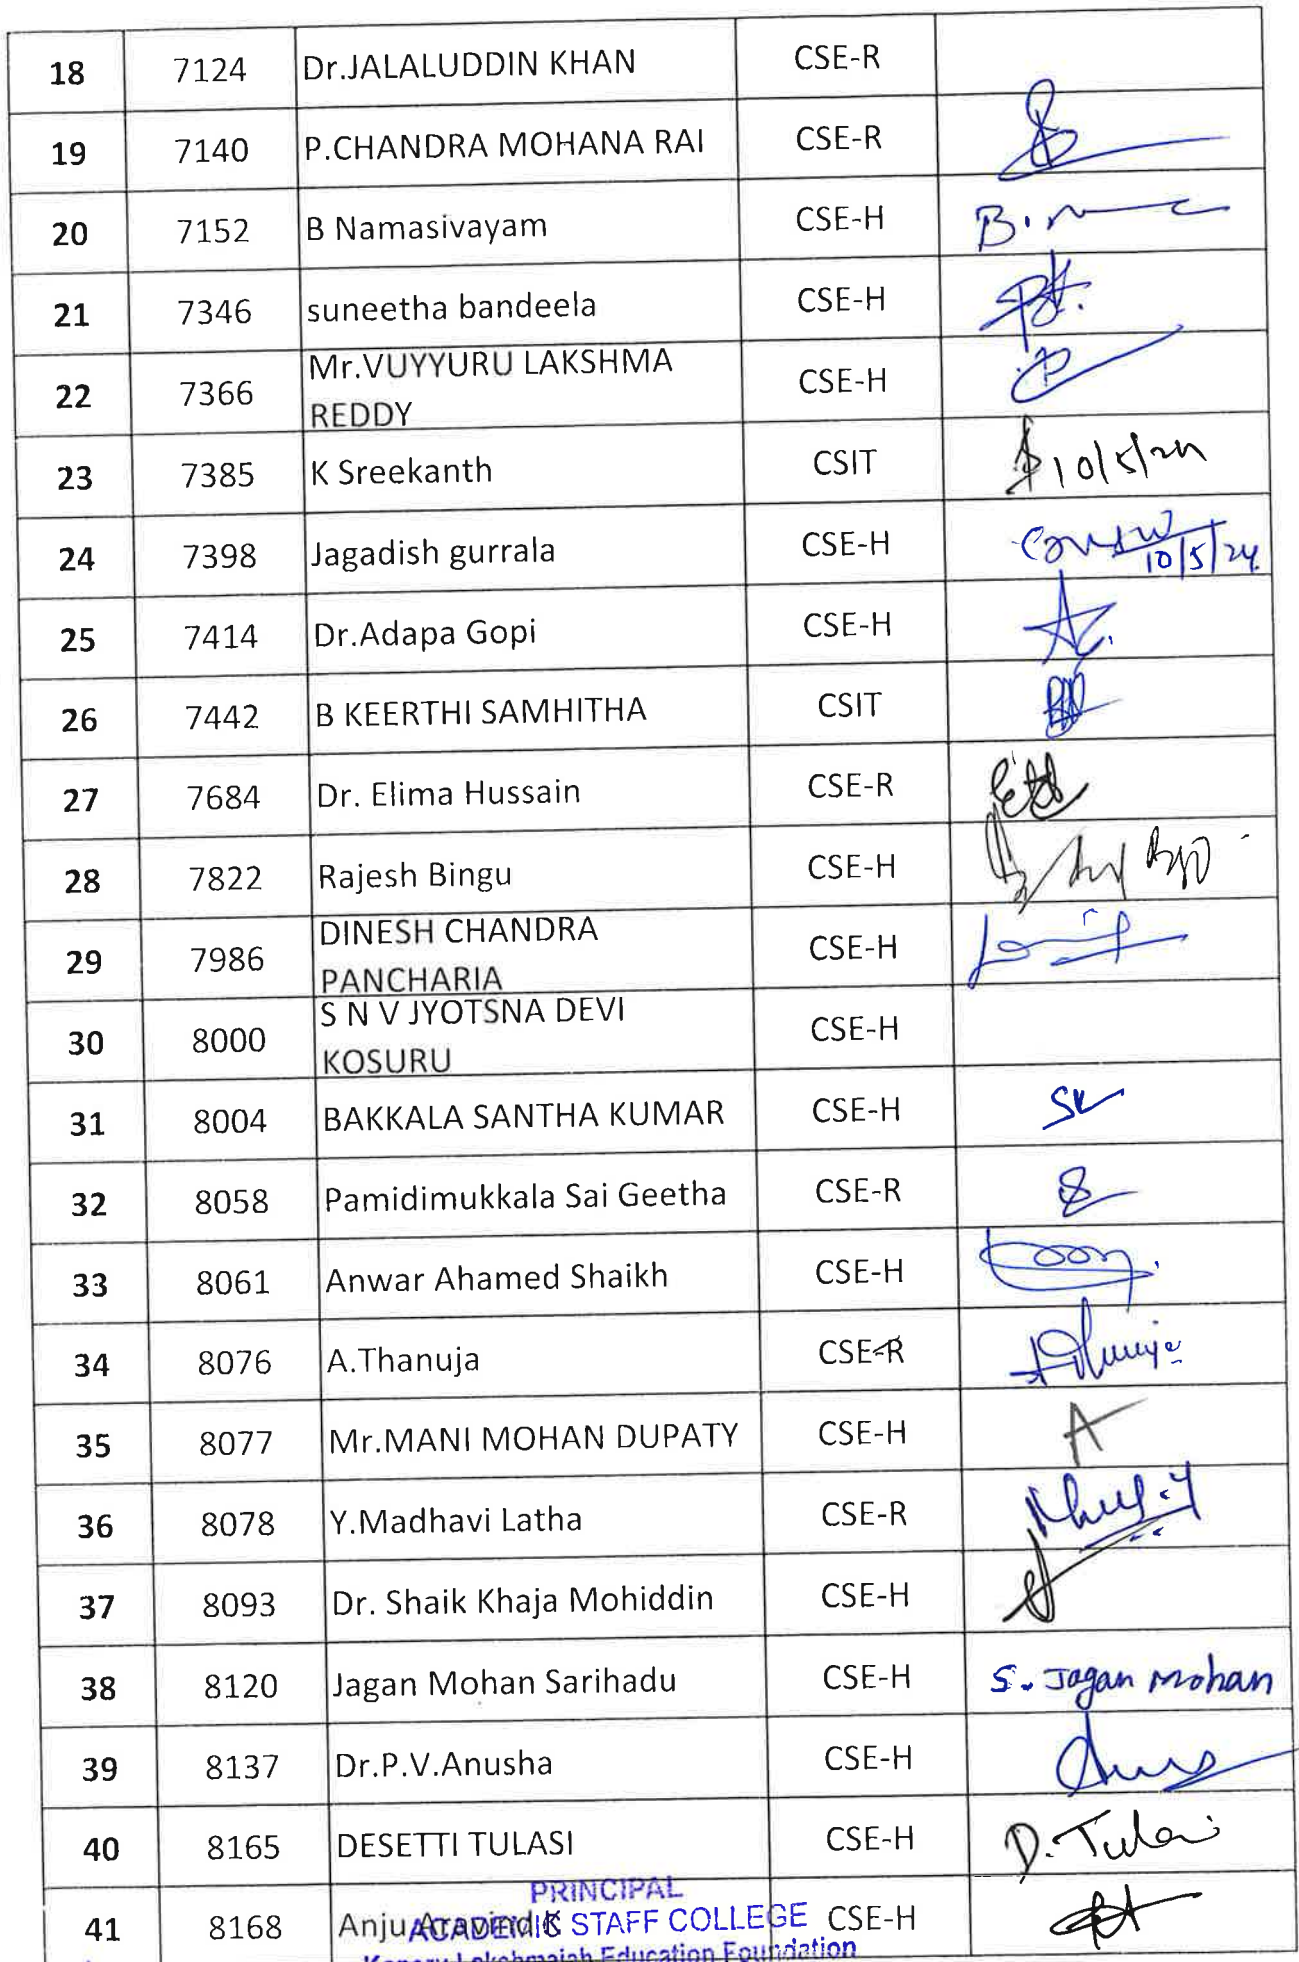 18 7124 Dr.JALALUDDIN KHAN CSE-R
19 7140 P.CHANDRA MOHANA RAI CSE-R
20 7152 B Namasivayam CSE-H
21 7346 suneetha bandeela CSE-H
22 7366 Mr.VUYYURU LAKSHMA CSE-H
REDDY
23 7385 K Sreekanth CSIT 10/5/24
24 7398 Jagadish gurrala CSE-H
10/5/24.
25 7414 Dr.Adapa Gopi CSE-H
26 7442 B KEERTHI SAMHITHA CSIT
27 7684 Dr. Elima Hussain CSE-R
28 7822 Rajesh Bingu CSE-H
29 7986 DINESH CHANDRA CSE-H
PANCHARIA
30 8000 S N V JYOTSNA DEVI CSE-H
KOSURU
31 8004 BAKKALA SANTHA KUMAR CSE-H
32 8058 Pamidimukkala Sai Geetha CSE-R
33 8061 Anwar Ahamed Shaikh CSE-H
34 8076 A.Thanuja CSE-R
35 8077 Mr.MANI MOHAN DUPATY CSE-H
36 8078 Y.Madhavi Latha CSE-R
37 8093 Dr. Shaik Khaja Mohiddin CSE-H
38 8120 Jagan Mohan Sarihadu CSE-H S. Jagan Mohan
39 8137 Dr.P.V.Anusha CSE-H
40 8165 DESETTI TULASI CSE-H D. Tulasi
PRINCIPAL
41 8168 Anju Aravind K CSE-H
ACADEMIC STAFF COLLEGE
Koneru Lakshmaiah Education Foundation